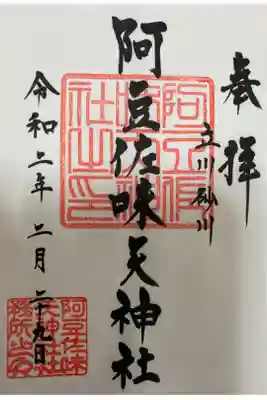 奉拝
立川砂川
阿豆佐味天神社
阿豆佐
味天神
社之印
令和二年二月二十九日
阿豆佐味